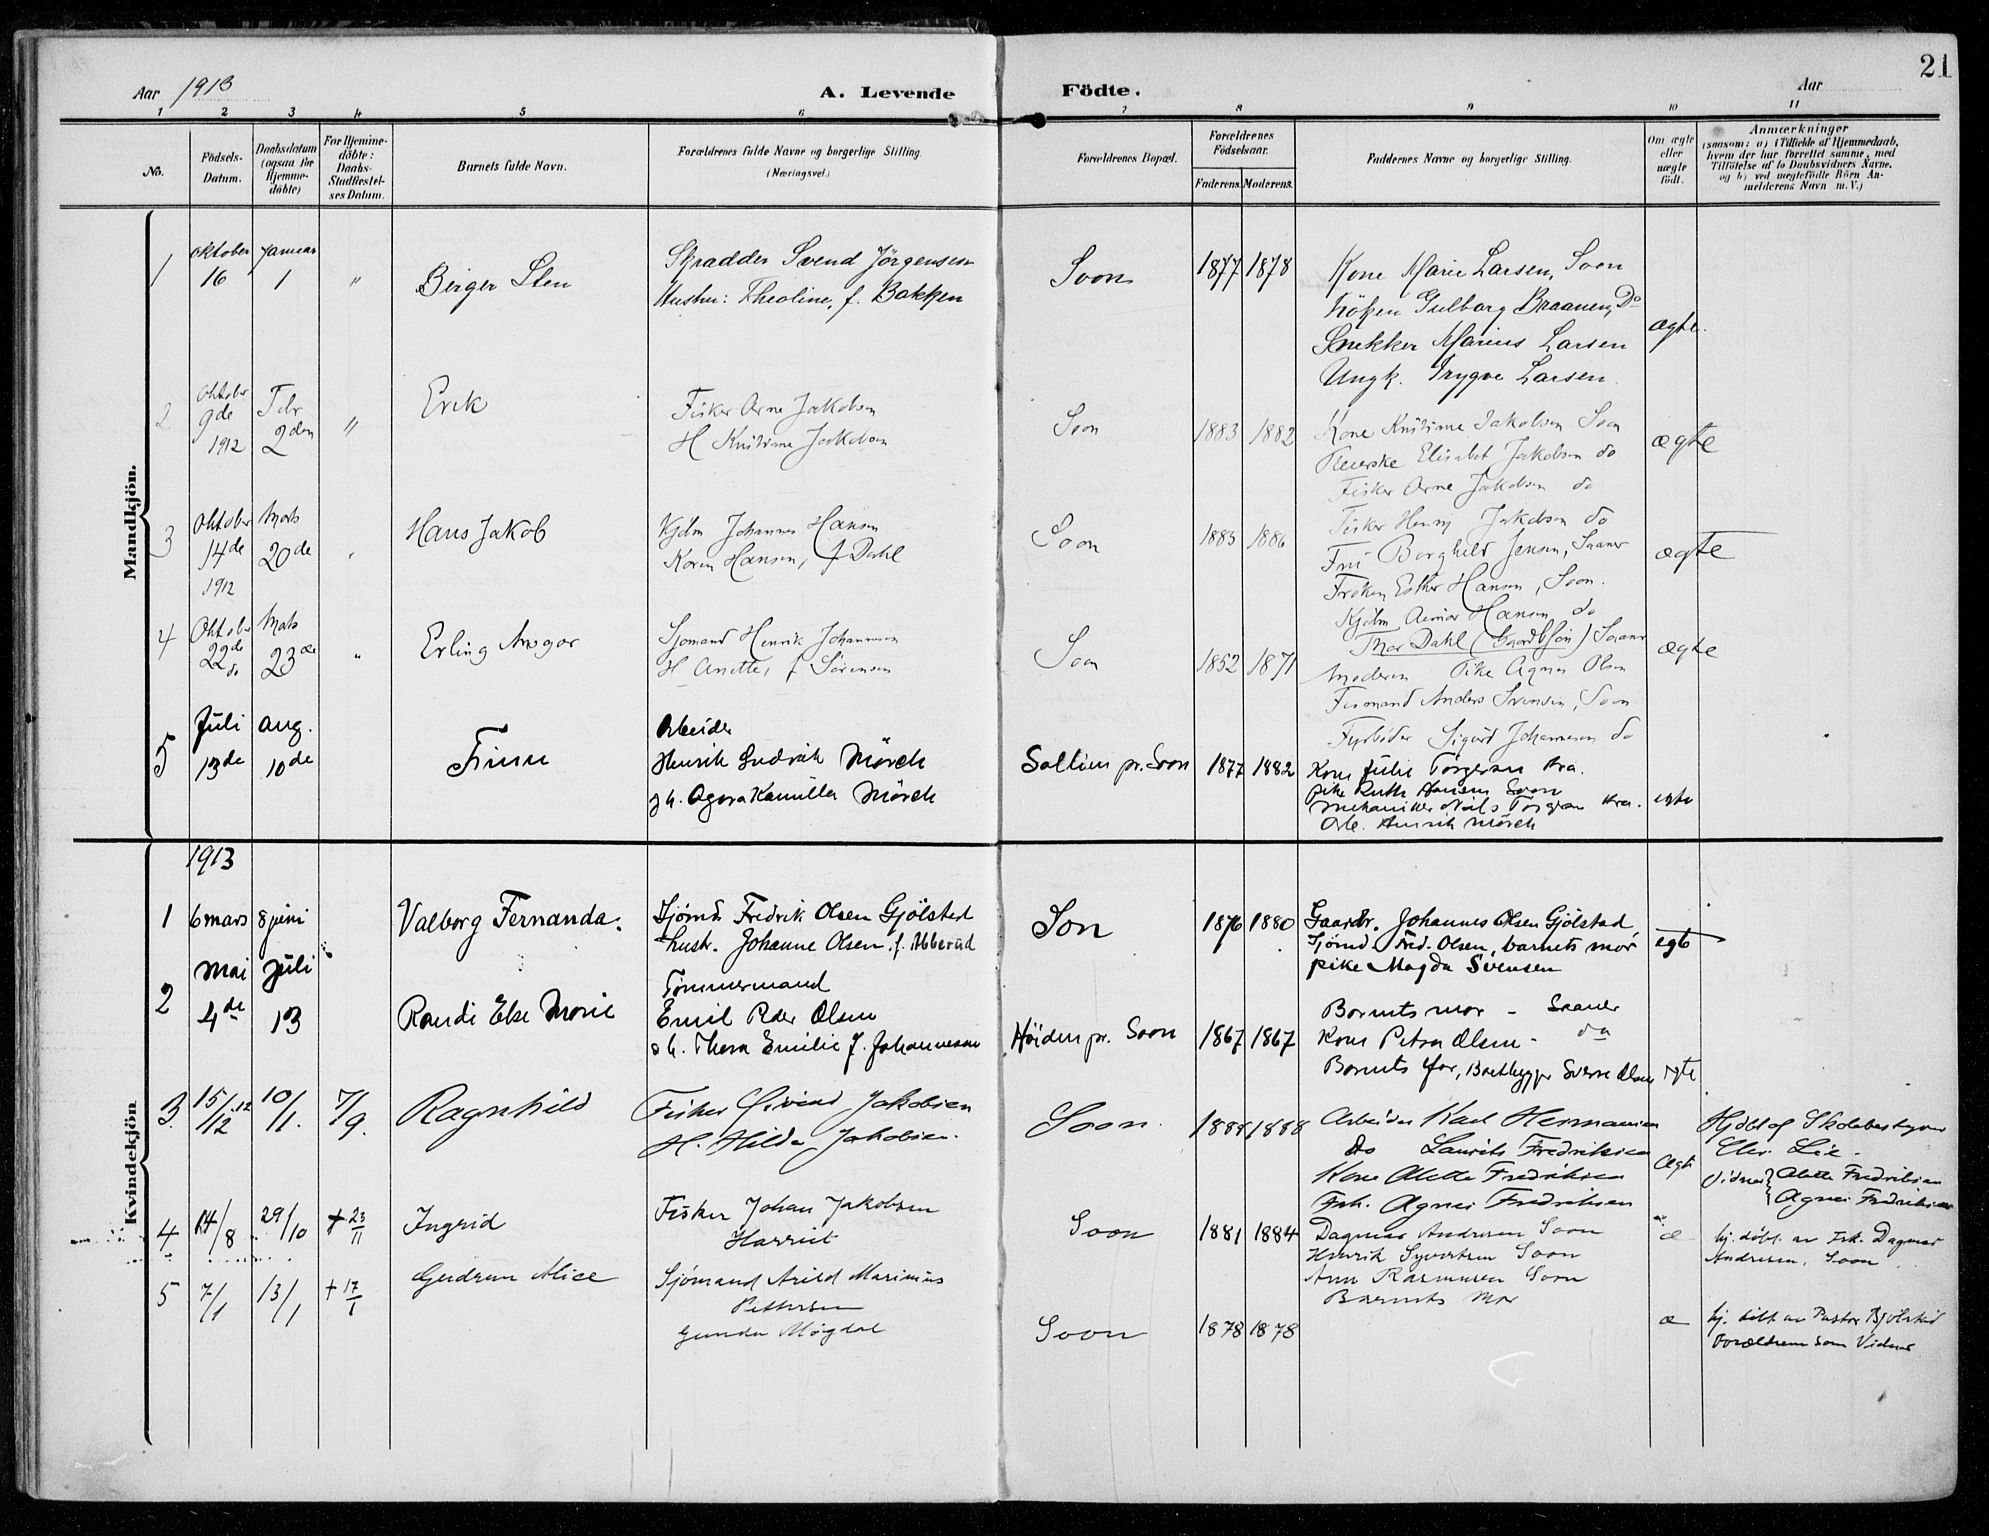 21
Aar 1913
A. Levende Födte.
Aar
1 2 3 4 5 6 7 8 9 10 11
No.
Födsels-Datum.
Daabsdatum (ogsaa for Hjemme-döbte)
For Hjemme-döbte: Daabs-Stadfæstel-ses Datum.
Barnets fulde Navn.
Forældrenes fulde Navne og borgerlige Stilling. (Næringsvei.)
Forældrenes Bopæl.
Forældrenes Födselsaar.
Faderens. Moderens.
Faddernes Navne og borgerlige Stilling.
Om ægte eller uægte födt.
Anmærkninger
(saasom: a) i Tilfælde af Hjemmedaab, hvem der har forrettet samme, med Tilföielse af to Daabsvidners Navne, og b) ved uægtefödte Börn An-melderens Navn m. V.)
Mandkjön.
1 Oktober 16 Januar 1 " Birger Sten
Skrædder Svend Jörgensen
Hustru: Theoline, f. Bakken
Soon 1877 1878
Kone Marie Larsen, Soon
Fröken Gulborg Braanen, Do
Snekker Marius Larsen
Ungk. Trygve Larsen
ægte.
2 Oktober 9de 1912 Febr 2den " Erik
Fisker Arne Jakobsen
H Kristiane Jakobsen
Soon 1883 1882
Kone Kristiane Jakobsen Soon
Elisabet Jakobsen do
Fisker Arne Jakobsen do
Fisker Henry Jakobsen do
ægte
3 Oktober 14de 1912 Mars 20de Hans Jakob
Johannes Hansen
Karen Hansen, f Dahl
Soon 1885 1886
Fru Borghild Jensen, Saaner
Frøken Esther Hansen, Soon.
Hansen do
Thor Dahl Saaner
ægte
4 Oktober 22de do Mars 23de " Erling Ansgar
Sjømand Henrik Johannesen
H Anette, f Sørensen
Soon 1852 1871
Moderen Pike Agnes Olsen
Anders Svensen, Soon
Sigurd Johannesen do
ægte
5 Juli 13de Aug. 10de Finn
Arbeider
Henrik Mörch
g h. Agora Kamilla Mörch
Soltun pr. Soon 1877 1882
Kone Julie Torgersen Kra.
pike Ruth Hansen Soon
mekaniker Nils Torgersen Kra.
Arb. Henrik Mörch
egte
Kvindekjön
1913
1 6 mars 8 juni Valborg Fernanda.
Sjømd. Fredrik Olsen Gjölstad
hustr. Johanne Olsen. f. Abberud
Son 1876 1880
Gaardbr. Johannes Olsen Gjölstad
Sjømd. Fred. Olsen, barnets mor,
pike Magda Svensen
egte
2 Mai 4de Juli 13 Randi Else Marie
Tømmermand
Emil Peder Olsen
g h. Thora Emilie f. Johannesen
Høiden pr. Soon 1867 1867
Barnets mor - Saaner
Kone Petra Olsen - do
Barnets far, Baatbygger Sverre Olsen
egte
3. 15/12 12 10/1. 7/9. Ragnhild
Fisker Øivind Jakobsen
H. Hilda Jakobsen.
Soon. 1888 1888
Arbeider Karl Hermansen
do Laurits Fredriksen
Kone Alette Fredriksen
Frk. Agnes Fredriksen
Ægte
Hjdbt af Skolebestyrer
Chr. Lie.
Vidner Alette Fredriksen
Agnes Fredriksen
4 14/8 29/10 + 23/11 Ingrid
Fisker Johan Jakobsen
Harriet
Soon 1881 1884
Dagmar Andresen Soon
Henrik Syvertsen Soon
Anna Rasmussen Soon
Barnets Mor
æ
hj. døbt av Frk. Dagmar
Andresen, Soon.
5 7/1 13/1 + 17/1 Gudrun Alice
Sjömand Arild Marinius
Pettersen
Gunda Magdal
Soon 1878 1878
æ
hj. döbt av Pastor Bjölstad
Forældrene som Vidner